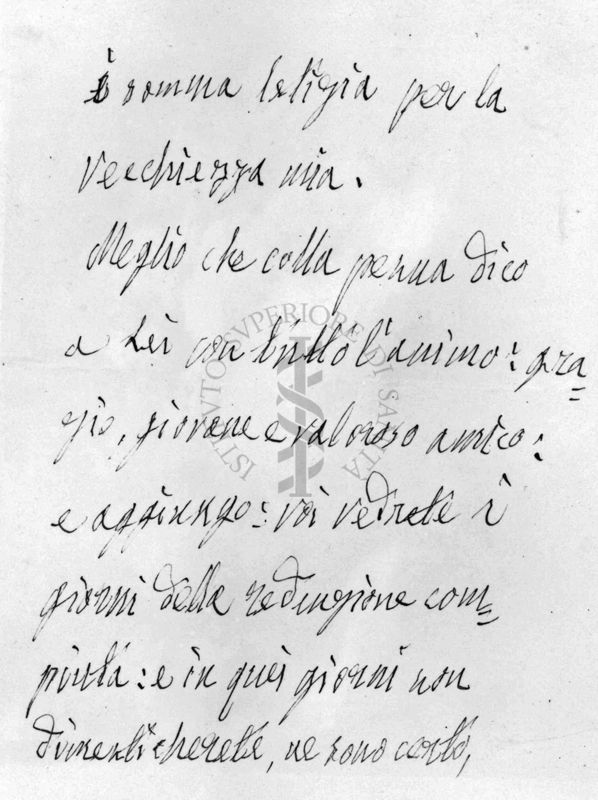 è somma letizia per la
vecchiezza mia.
Meglio che colla penna dico
a Lei con tutto l'animo: gra=
zie, giovane e valoroso amico:
e aggiungo: voi vedrete i
giorni della redenzione com=
piuta: e in quei giorni non
dimenticherete, ne sono certo,
ISTITUTO SVPERIORE DI SANITA